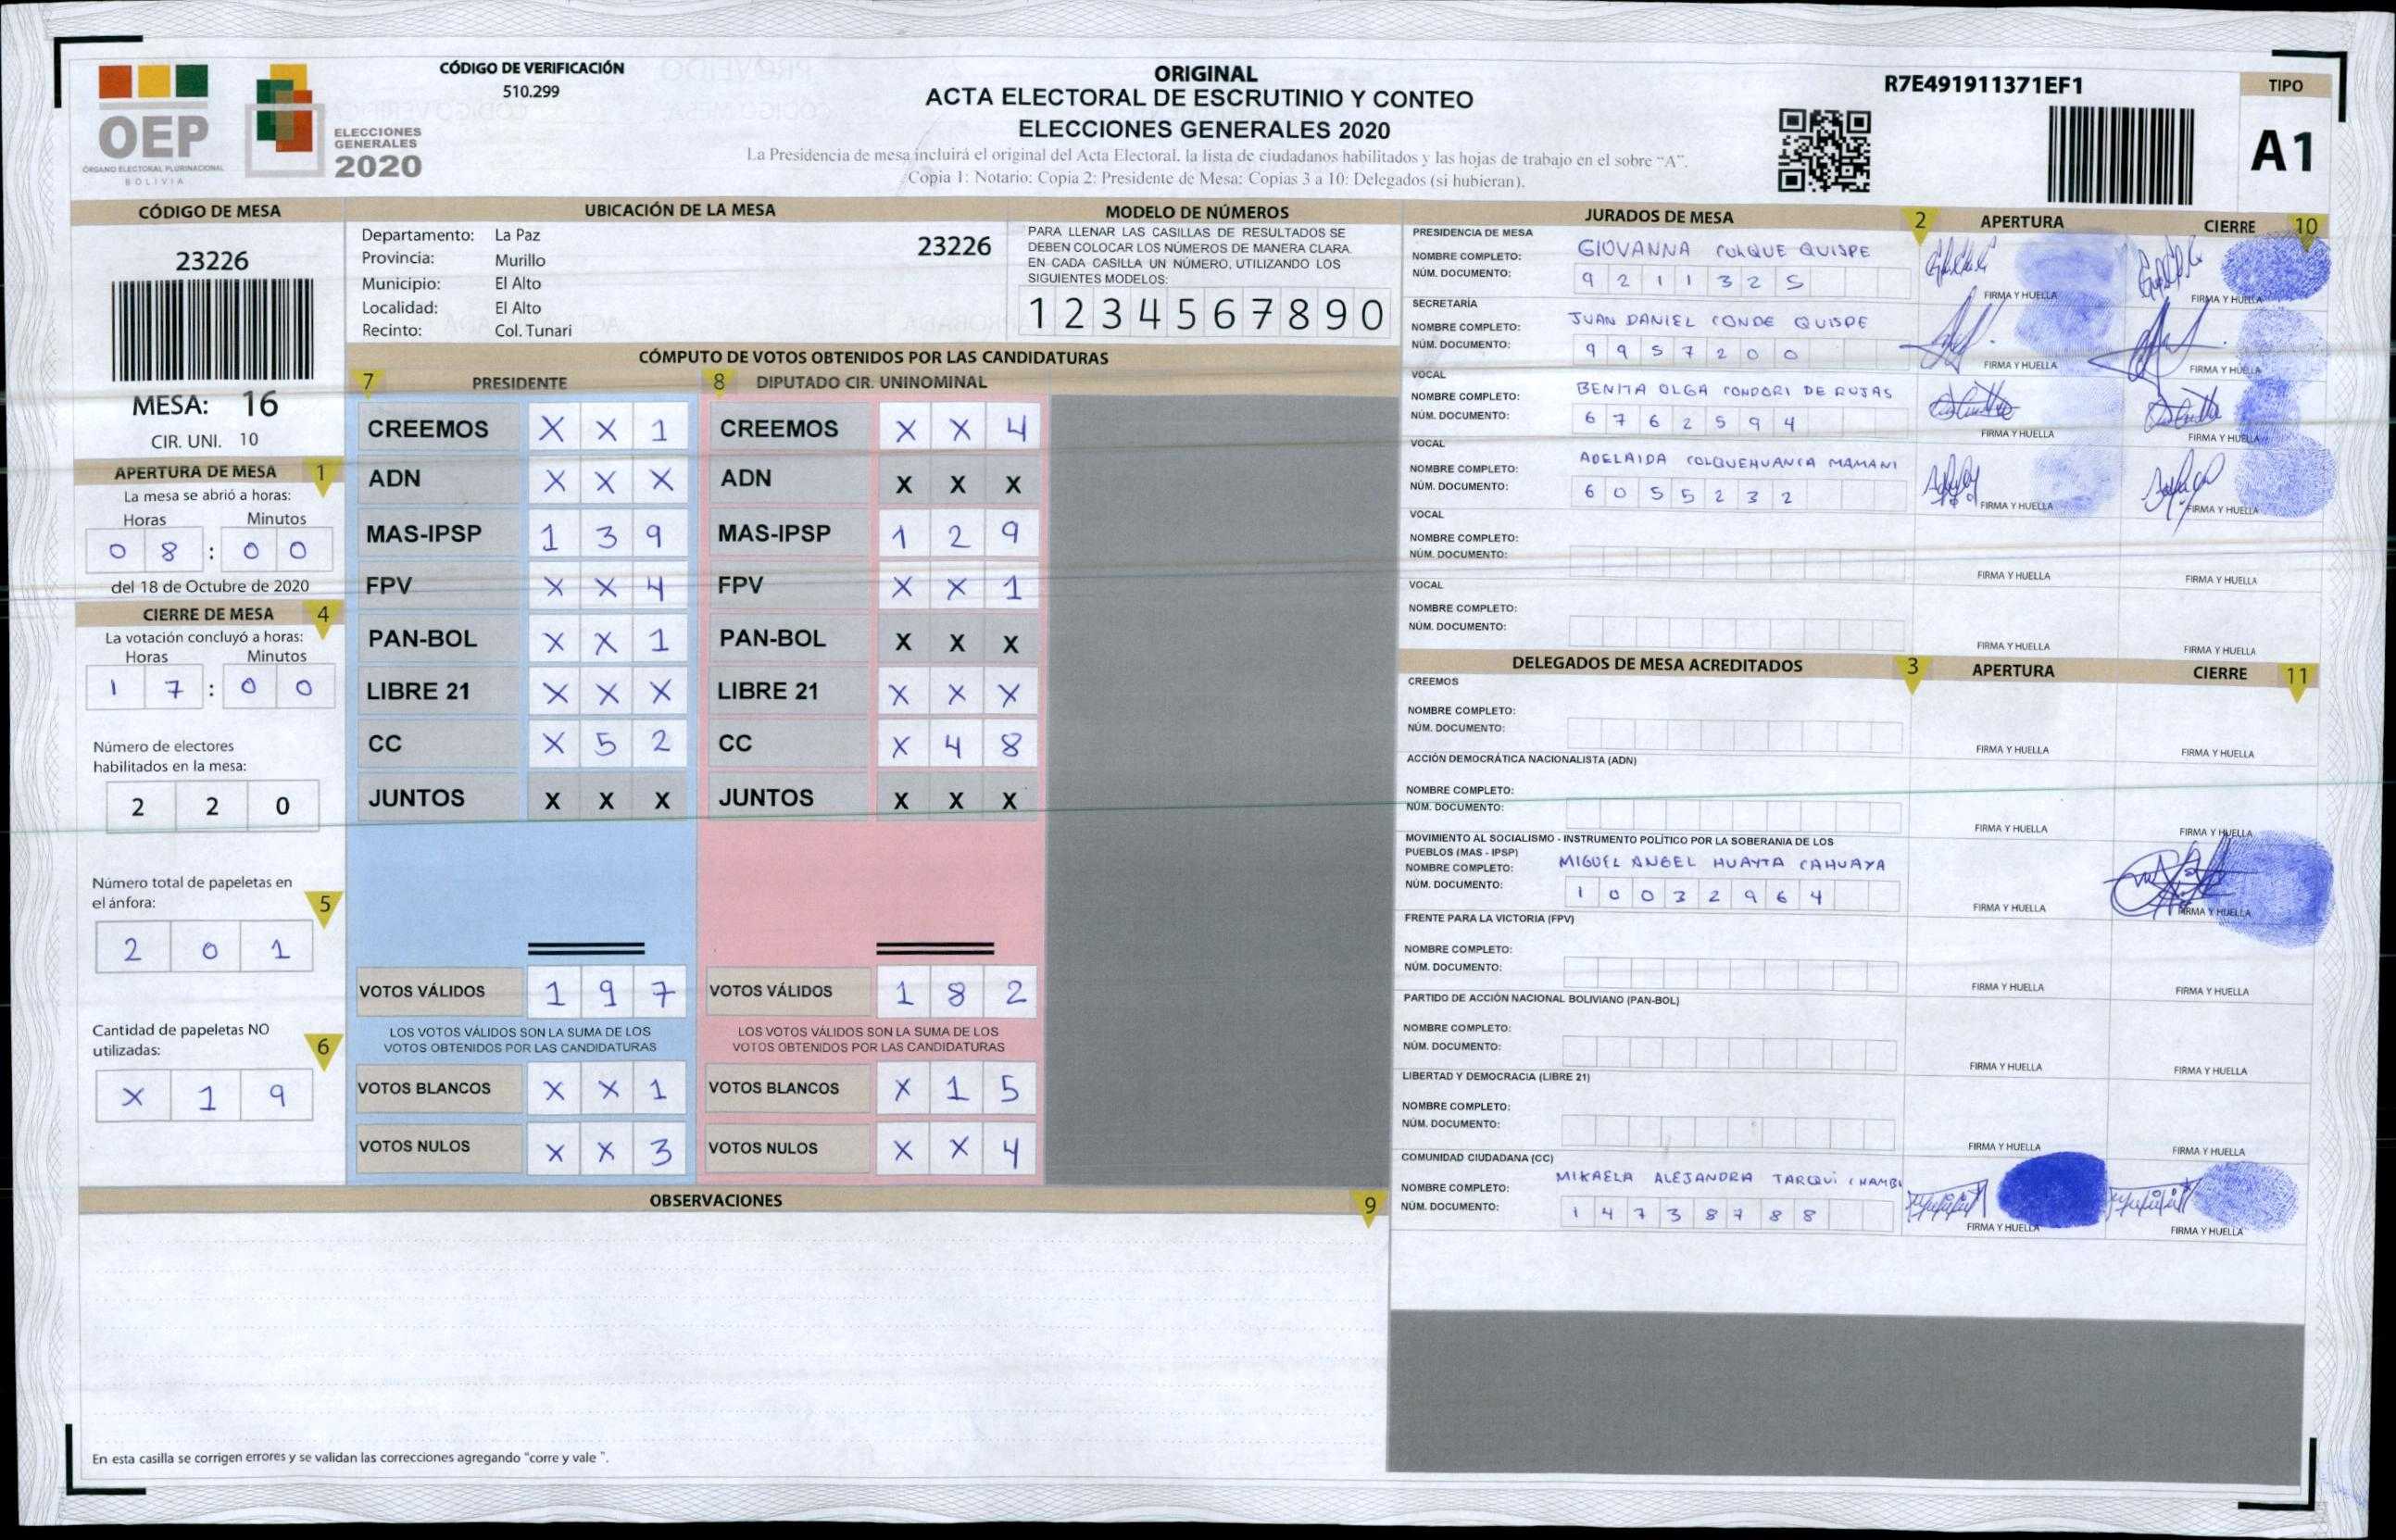 CÓDIGO DE VERIFICACIÓN
510.299
OEP
ÓRGANO ELECTORAL PLURINACIONAL
BOLIVIA
ELECCIONES
GENERALES
2020
ORIGINAL
ACTA ELECTORAL DE ESCRUTINIO Y CONTEO
ELECCIONES GENERALES 2020
La Presidencia de mesa incluirá el original del Acta Electoral, la lista de ciudadanos habilitados y las hojas de trabajo en el sobre “A”.
Copia 1: Notario; Copia 2: Presidente de Mesa; Copias 3 a 10: Delegados (si hubieran).
R7E491911371EF1
TIPO
A1
CÓDIGO DE MESA
23226
MESA: 16
CIR. UNI. 10
APERTURA DE MESA 1
La mesa se abrió a horas:
Horas Minutos
0 8 : 0 0
del 18 de Octubre de 2020
CIERRE DE MESA 4
La votación concluyó a horas:
Horas Minutos
1 7 : 0 0
Número de electores
habilitados en la mesa:
2 2 0
Número total de papeletas en
el ánfora: 5
2 0 1
Cantidad de papeletas NO
utilizadas: 6
X 1 9
UBICACIÓN DE LA MESA
Departamento: La Paz 23226
Provincia: Murillo
Municipio: El Alto
Localidad: El Alto
Recinto: Col. Tunari
MODELO DE NÚMEROS
PARA LLENAR LAS CASILLAS DE RESULTADOS SE
DEBEN COLOCAR LOS NÚMEROS DE MANERA CLARA.
EN CADA CASILLA UN NÚMERO, UTILIZANDO LOS
SIGUIENTES MODELOS:
1 2 3 4 5 6 7 8 9 0
CÓMPUTO DE VOTOS OBTENIDOS POR LAS CANDIDATURAS
7 PRESIDENTE 8 DIPUTADO CIR. UNINOMINAL
CREEMOS X X 1 CREEMOS X X 4
ADN X X X ADN X X X
MAS-IPSP 1 3 9 MAS-IPSP 1 2 9
FPV X X 4 FPV X X 1
PAN-BOL X X 1 PAN-BOL X X X
LIBRE 21 X X X LIBRE 21 X X X
CC X 5 2 CC X 4 8
JUNTOS X X X JUNTOS X X X
VOTOS VÁLIDOS 1 9 7 VOTOS VÁLIDOS 1 8 2
LOS VOTOS VÁLIDOS SON LA SUMA DE LOS
VOTOS OBTENIDOS POR LAS CANDIDATURAS
LOS VOTOS VÁLIDOS SON LA SUMA DE LOS
VOTOS OBTENIDOS POR LAS CANDIDATURAS
VOTOS BLANCOS X X 1 VOTOS BLANCOS X 1 5
VOTOS NULOS X X 3 VOTOS NULOS X X 4
OBSERVACIONES 9
En esta casilla se corrigen errores y se validan las correcciones agregando “corre y vale”.
JURADOS DE MESA 2 APERTURA CIERRE 10
PRESIDENCIA DE MESA
NOMBRE COMPLETO: GIOVANNA COLQUE QUISPE
NÚM. DOCUMENTO: 9 2 1 1 3 2 5
FIRMA Y HUELLA FIRMA Y HUELLA
SECRETARÍA
NOMBRE COMPLETO: JUAN DANIEL CONDE QUISPE
NÚM. DOCUMENTO: 9 9 5 7 2 0 0
FIRMA Y HUELLA FIRMA Y HUELLA
VOCAL
NOMBRE COMPLETO: BENITA OLGA CONDORI DE ROJAS
NÚM. DOCUMENTO: 6 7 6 2 5 9 4
FIRMA Y HUELLA FIRMA Y HUELLA
VOCAL
NOMBRE COMPLETO: ADELAIDA COLQUEHUANCA MAMANI
NÚM. DOCUMENTO: 6 0 5 5 2 3 2
FIRMA Y HUELLA FIRMA Y HUELLA
VOCAL
NOMBRE COMPLETO:
NÚM. DOCUMENTO:
FIRMA Y HUELLA FIRMA Y HUELLA
VOCAL
NOMBRE COMPLETO:
NÚM. DOCUMENTO:
FIRMA Y HUELLA FIRMA Y HUELLA
DELEGADOS DE MESA ACREDITADOS 3 APERTURA CIERRE 11
CREEMOS
NOMBRE COMPLETO:
NÚM. DOCUMENTO:
FIRMA Y HUELLA FIRMA Y HUELLA
ACCIÓN DEMOCRÁTICA NACIONALISTA (ADN)
NOMBRE COMPLETO:
NÚM. DOCUMENTO:
FIRMA Y HUELLA FIRMA Y HUELLA
MOVIMIENTO AL SOCIALISMO - INSTRUMENTO POLÍTICO POR LA SOBERANIA DE LOS
PUEBLOS (MAS - IPSP)
NOMBRE COMPLETO: MIGUEL ANGEL HUAYTA CAHUAYA
NÚM. DOCUMENTO: 1 0 0 3 2 9 6 4
FIRMA Y HUELLA FIRMA Y HUELLA
FRENTE PARA LA VICTORIA (FPV)
NOMBRE COMPLETO:
NÚM. DOCUMENTO:
FIRMA Y HUELLA FIRMA Y HUELLA
PARTIDO DE ACCIÓN NACIONAL BOLIVIANO (PAN-BOL)
NOMBRE COMPLETO:
NÚM. DOCUMENTO:
FIRMA Y HUELLA FIRMA Y HUELLA
LIBERTAD Y DEMOCRACIA (LIBRE 21)
NOMBRE COMPLETO:
NÚM. DOCUMENTO:
FIRMA Y HUELLA FIRMA Y HUELLA
COMUNIDAD CIUDADANA (CC)
NOMBRE COMPLETO: MIKAELA ALEJANDRA TARQUI CHAMBI
NÚM. DOCUMENTO: 1 4 7 3 8 7 8 8
FIRMA Y HUELLA FIRMA Y HUELLA